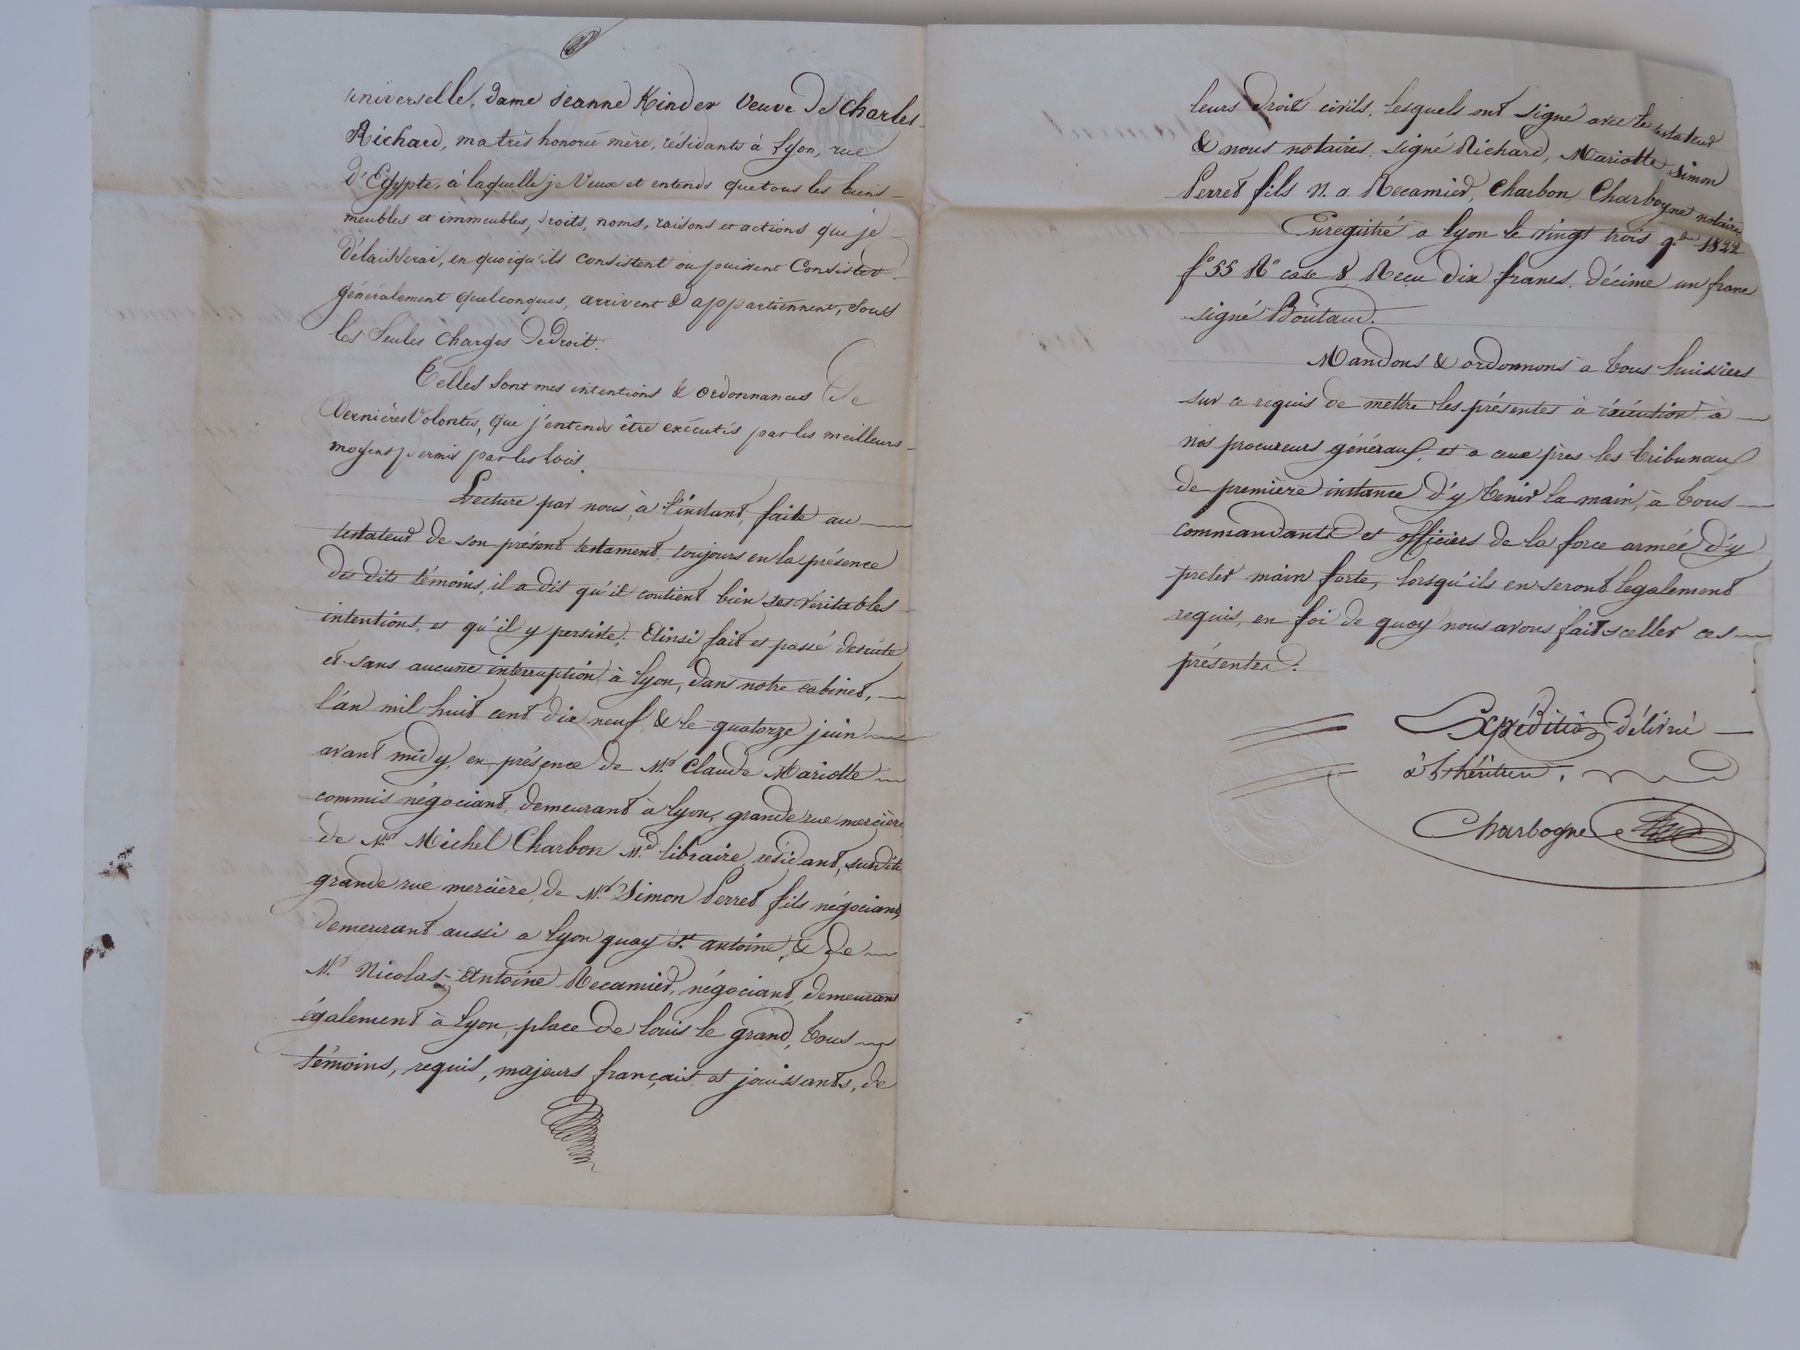 universelle, dame Jeanne Kinder veuve de Charles
Richard, ma très honorée mère, résidante à Lyon, rue
d'Egypte, à laquelle je veux et entends que tous les biens
meubles et immeubles, droits, noms, raisons et actions que je
délaisserai, en quoiqu'ils consistent ou puissent consister
généralement quelconques, arrivent & appartiennent, sous
les seules charges de droit.
Telles sont mes intentions & ordonnances de
dernières volontés, que j'entends être exécutés par les meilleurs
moyens permis par les lois.
Lecture par nous, à l'instant, faite au
testateur de son présent testament, toujours en la présence
des dits témoins, il a dit qu'il contient bien ses véritables
intentions, et qu'il y persiste. Ainsi fait et passé de suite
et sans aucune interruption à Lyon, dans notre cabinet,
l'an mil huit cent dix neuf & le quatorze juin
avant midy, en présence de Mr. Claude Mariotte
commis négociant, demeurant à Lyon, grande rue mercière,
de Mr. Michel Charbon Md. libraire, résidant, susdite
grande rue mercière, de Mr. Simon Perret fils négociant,
demeurant aussi a Lyon quay St. antoine, & de
Mr. Nicolas-Antoine Recamier, négociant, demeurant
également à Lyon, place de louis le grand, tous
témoins, requis, majeurs français et jouissants, de
leurs droits civils, lesquels ont signé avec le testateur
& nous notaires. signé Richard, Mariotte, Simon
Perret fils N. a Recamier, Charbon, Charbogne notaires
Enregistré a Lyon le vingt trois 9.bre 1822
f° 55 R° case 8 Reçu dix francs, décime un franc
signé Boutaud.
Mandons & ordonnons à tous huissiers
sur ce requis de mettre les présentes à éxécution à
nos procureurs généraux, et a ceux près les tribunaux
de première instance d'y tenir la main, à tous
commandants et officiers de la force armée d'y
preter main forte, lorsqu'ils en seront legalement
requis, en foi de quoy nous avons fait sceller ces
présentes.
Expédition délivrée
à l'héritière.
Charbogne